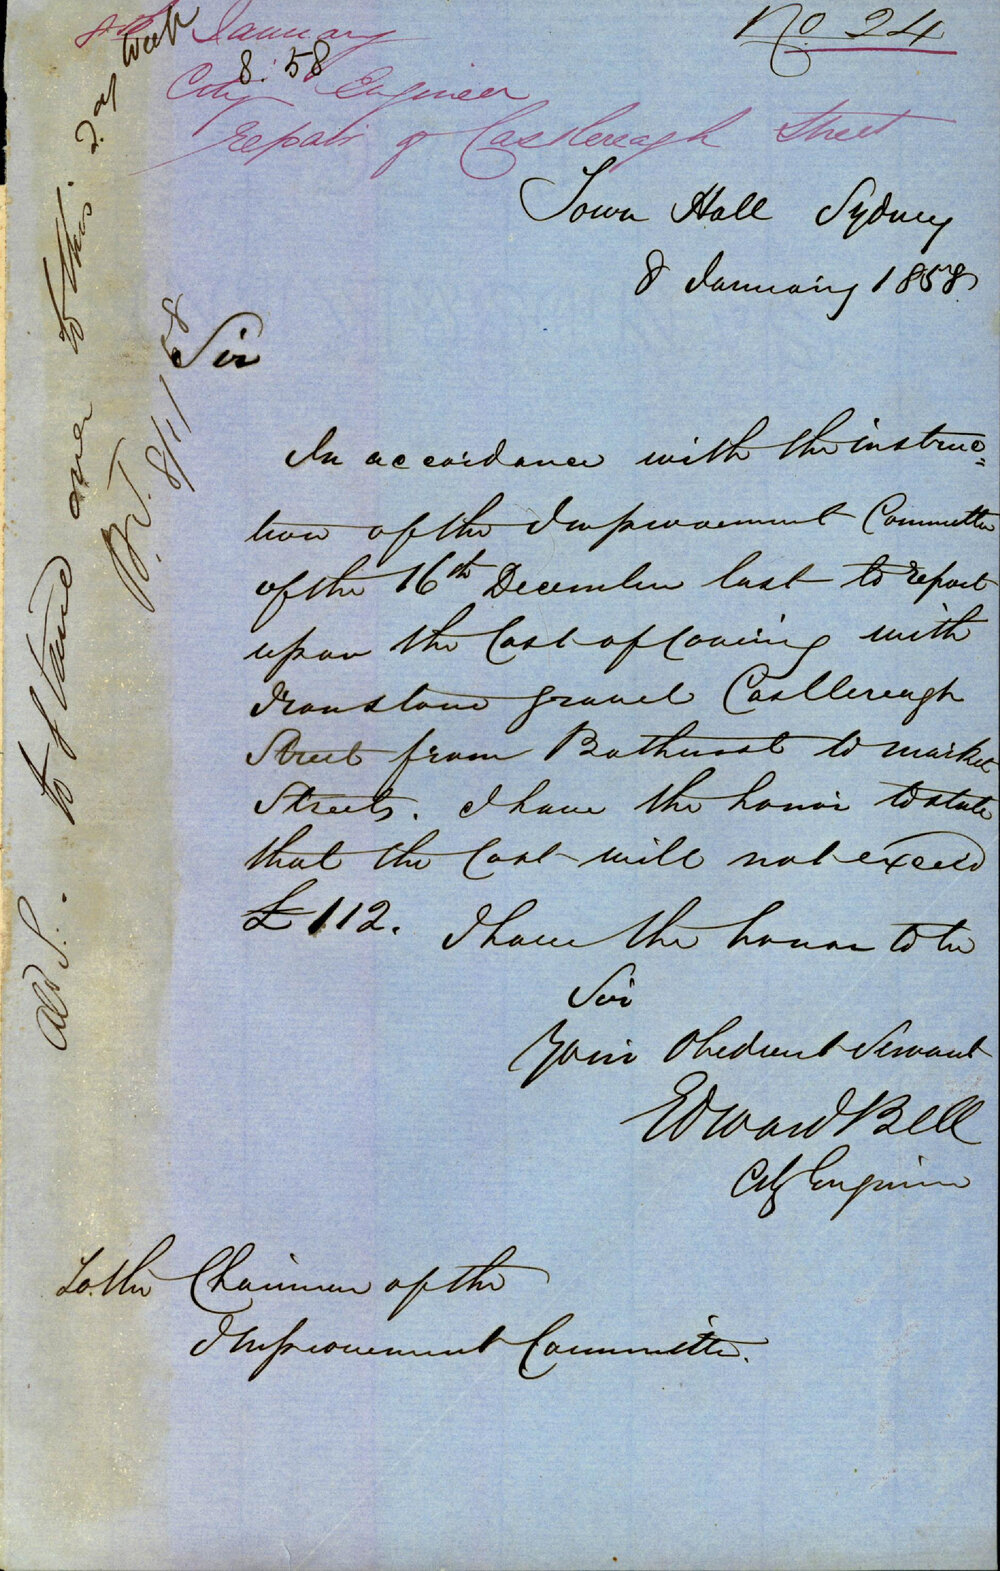 No. 24
8th January
8. 58
City Engineer
repair of Castlereagh Street
Town Hall Sydney
8 January 1858
Sir
In accordance with the instruc=
tion of the Improvement Committee
of the 16th December last to report
upon the Cost of Covering with
Ironstone gravel Castlereagh
Street from Bathurst to Market
Streets. I have the honor to state
that the Cost will not exceed
£112. I have the honor to be
Sir
Your Obedient Servant
Edward Bell
City Engineer
To the Chairman of the
Improvement Committee.
to stand over to this day week
8/1/58